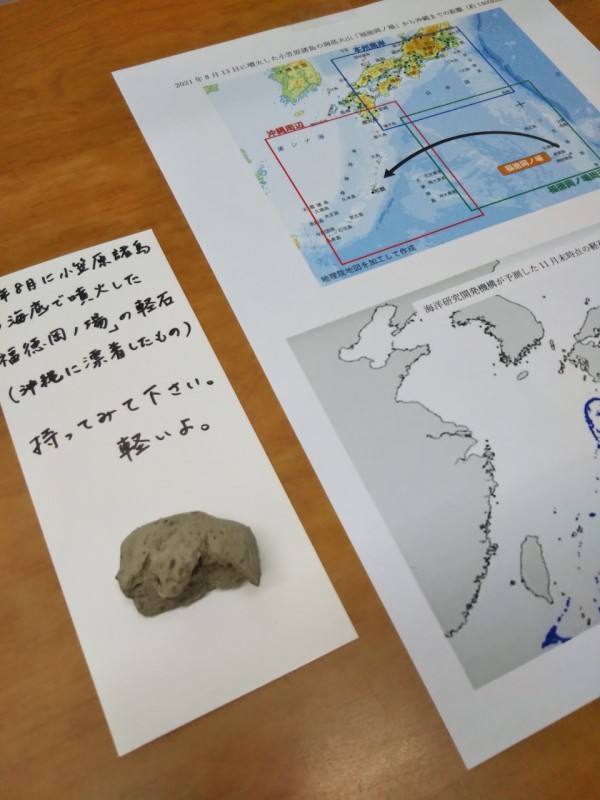 年8月に小笠原諸島
海底で噴火した
福徳岡ノ場」の軽石
(沖縄に漂着したもの)
持ってみて下さい。
軽いよ。
2021年8月13日に噴火した小笠原諸島の海底火山「福徳岡ノ場」から沖縄までの距離(約1400km
本州周辺
沖縄周辺
東シナ海
日本国
福徳岡ノ場
福徳岡ノ場周
地理院地図を加工して作成
海洋研究開発機構が予測した11月末時点の軽石